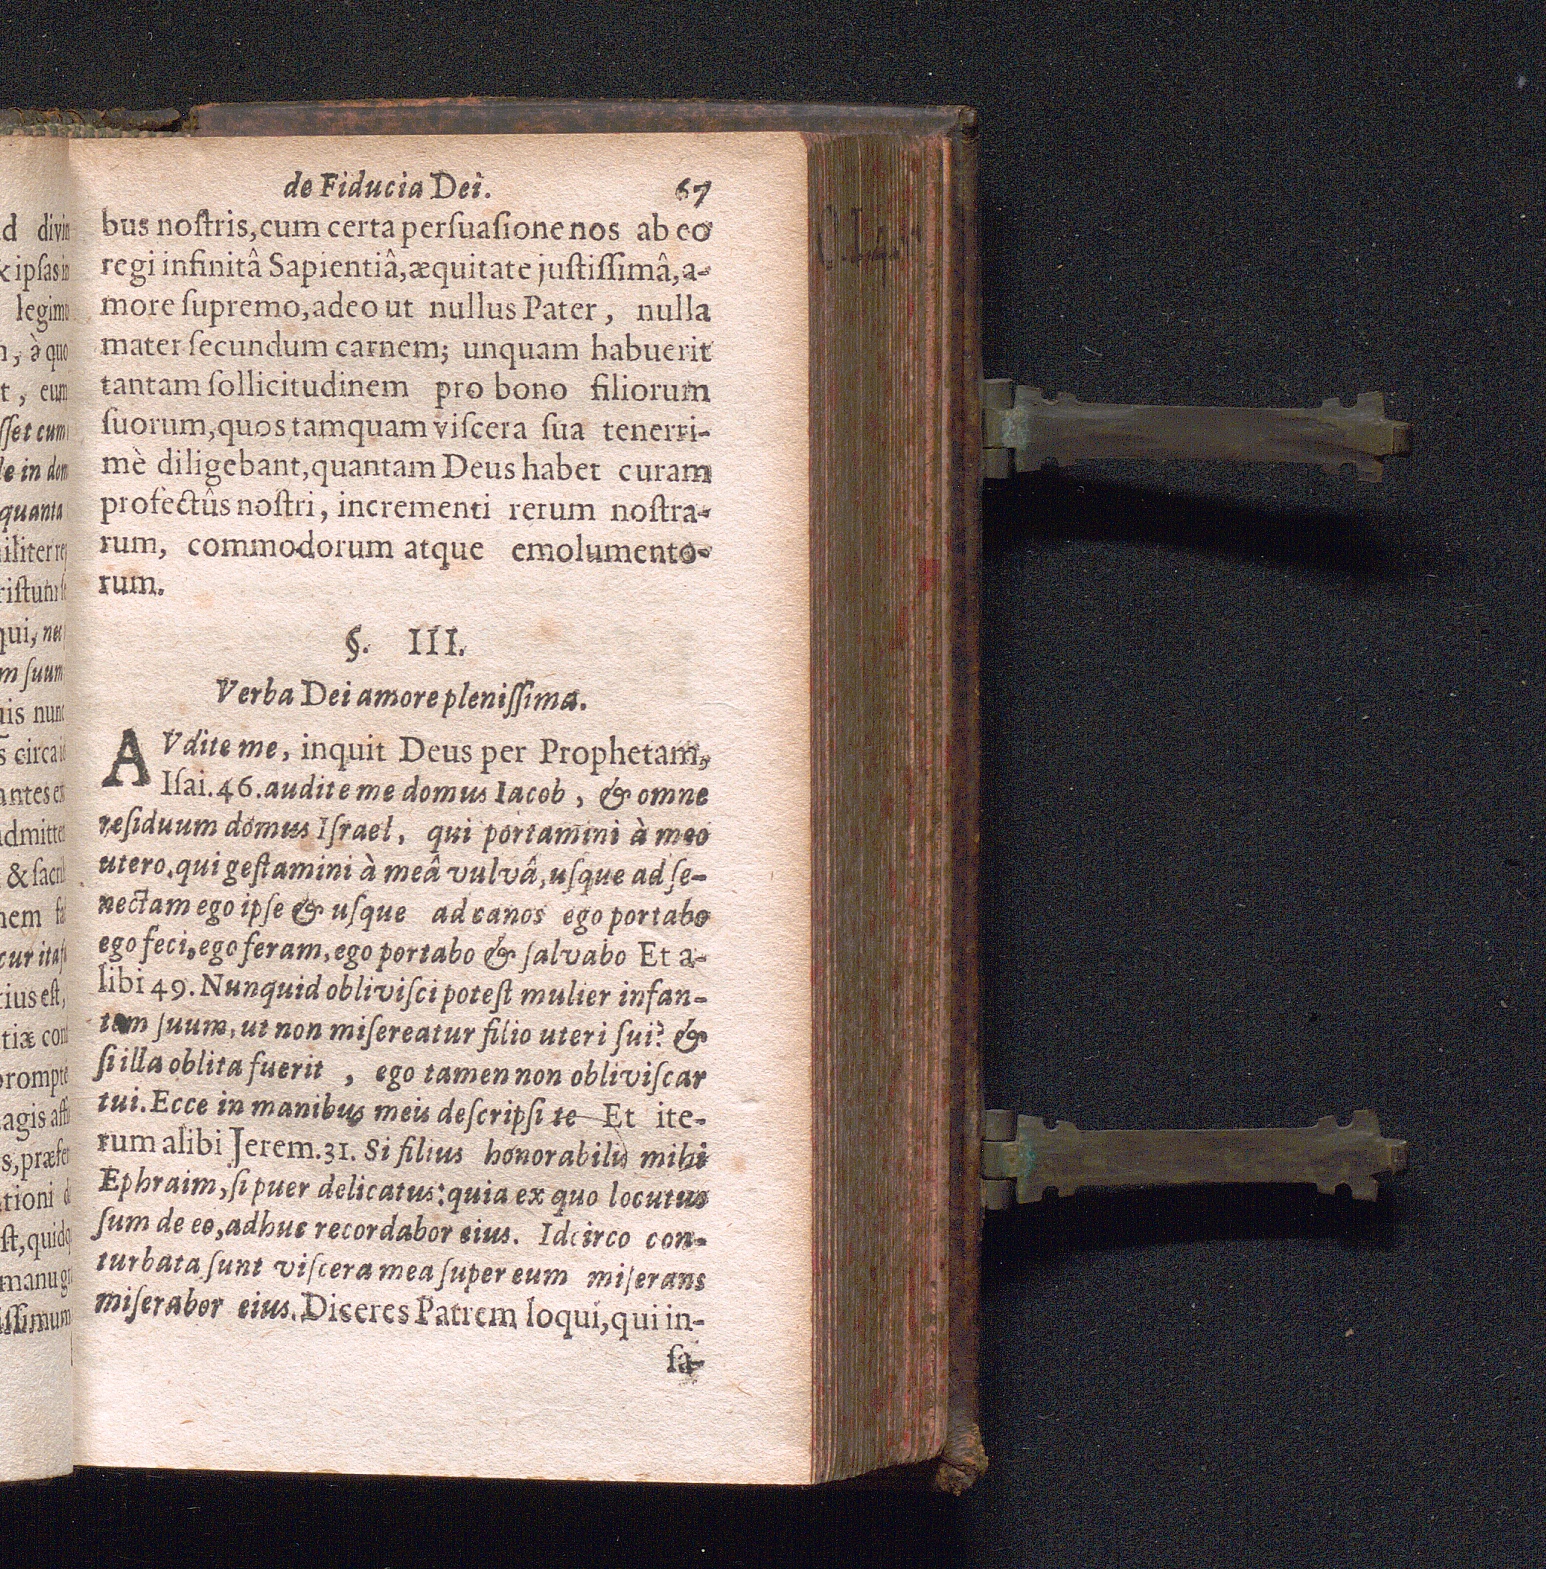 de Fiducia Dei. 67
bus noſtris, cum certa perſuaſione nos ab eo
regi infinitâ Sapientiâ, æquitate juſtiſſimâ, a-
more ſupremo, adeo ut nullus Pater, nulla
mater ſecundum carnem; unquam habuerit
tantam ſollicitudinem pro bono filiorum
ſuorum, quos tamquam viſcera ſua tenerri-
mè diligebant, quantam Deus habet curam
profectûs noſtri, incrementi rerum noſtra-
rum, commodorum atque emolumento-
rum.
§. III.
Verba Dei amore pleniſſima.
AVdite me, inquit Deus per Prophetam,
Iſai. 46. audite me domus Iacob, & omne
reſiduum domus Iſrael, qui portamini à meo
utero, qui geſtamini à meâ vulvâ, uſque ad ſe-
nectam ego ipſe & uſque ad canos ego portabo
ego feci, ego feram, ego portabo & ſalvabo Et a-
libi 49. Nunquid obliviſci poteſt mulier infan-
tem ſuum, ut non miſereatur filio uteri ſui? &
ſi illa oblita fuerit , ego tamen non obliviſcar
tui. Ecce in manibus meis deſcripſi te Et ite-
rum alibi Jerem. 31. Si filius honorabilis mihi
Ephraim, ſi puer delicatus: quia ex quo locutus
ſum de eo, adhuc recordabor eius. Idcirco con-
turbata ſunt viſcera mea ſuper eum miſerans
miſerabor eius. Diceres Patrem loqui, qui in-
ſa-